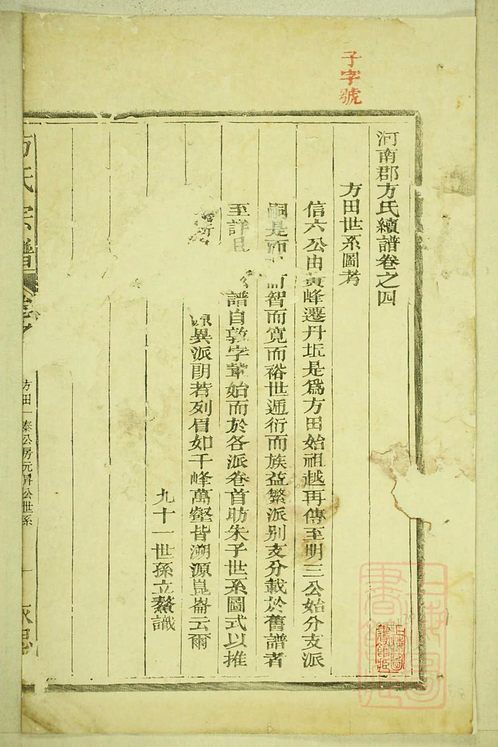 子字號
河南郡方氏續譜卷之四
方田世系圖考
信六公由黃峰遷丹坵是爲方田始祖越再傳至明三公始分支派
是而 而智而寬而裕世遞衍而族益繁派別支分載於舊譜者
至詳且 譜自敦字輩始而於各派卷首昉朱子世系圖式以推
異派朗若列眉如千峰萬壑皆溯源崑崙云爾
九十一世孫立鰲識
方氏宗譜
方田一泰公房元昇公世系
一